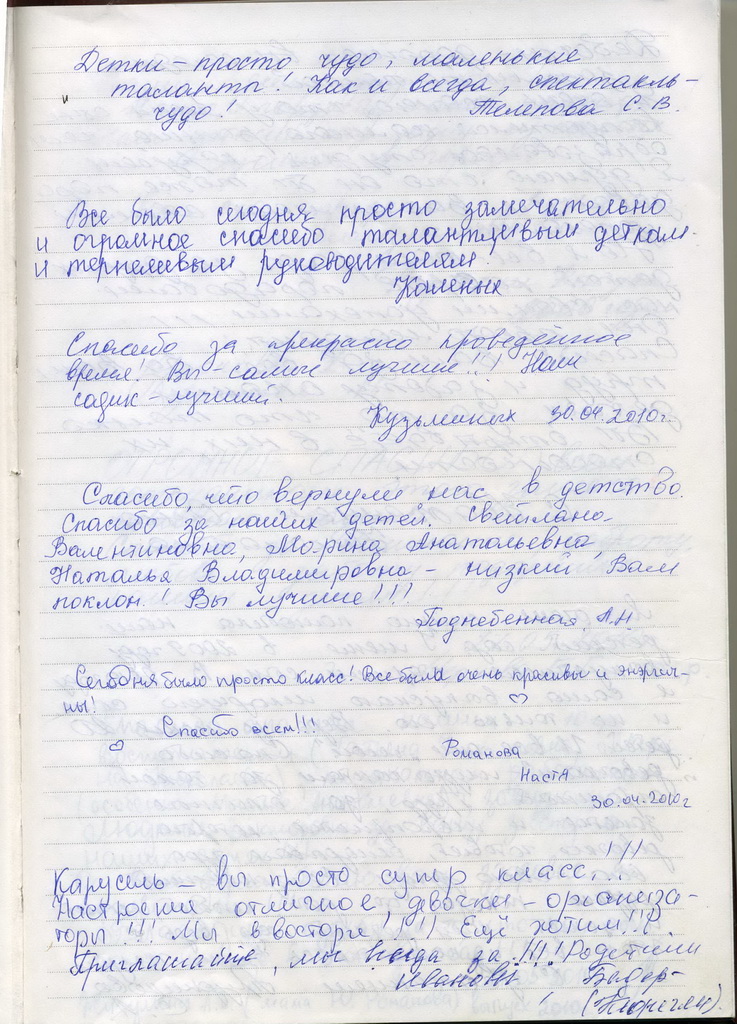 Детки – просто чудо, маленькие
таланты! Как и всегда, спектакль –
чудо! Телепова С. В.
Все было сегодня просто замечательно
и огромное спасибо талантливым деткам
и терпеливым руководителям.
Каменых
Спасибо за прекрасно проведённое
время! Вы – самые лучшие!!! Наш
садик – лучший.
Кузьминых 30.04.2010г.
Спасибо, что вернули нас в детство.
Спасибо за наших детей. Светлана
Валентиновна, Марина Анатольевна,
Наталья Владимировна – низкий Вам
поклон! Вы лучшие!!!
Поднебенная А.Н.
Сегодня было просто класс! Все были очень красивы и энэргич-
ны!
Спасибо всем!!!
Романова
Настя
30.04.2010г
Карусель – вы просто супер класс!!!
Настроение отличное, девочки – организа-
торы!!! Мы в восторге!!!! Ещё хотим!!!
Приглашайте, мы всегда за!!!! Родители
Ивановы, Бадер-